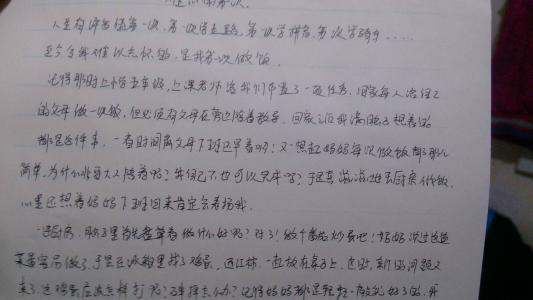 难忘的第一次
人生有许许多多第一次,第一次学走路,第一次学拼音,第一次学骑车.....
至今令我难以忘怀的,是我第一次做饭。
记得那时上小学五年级,上课老师给我们布置了一项任务,回家每人给自己
的父母做一次饭,但必须有父母在旁边陪着指导。回家之后我满脑子想着的
都是这件事,一看时间离父母下班还早着呢?又一想起妈妈每次做饭都那么
简单,为什么非要大人陪着呢?我自己不也可以完成吗?于是走进厨房做饭,
心里还想着妈妈下班回来肯定会表扬我。
一进厨房,我心里首先盘算着做什么好呢?对了!做个番茄炒鸡蛋吧!妈妈说过这道
菜最容易做了,于是在冰箱里拿了鸡蛋、西红柿,一起放在桌子上,这时,新的问题又
来了,这鸡蛋应该怎样打呢?怎样去办?记得妈妈都是轻轻一敲就好了的,我